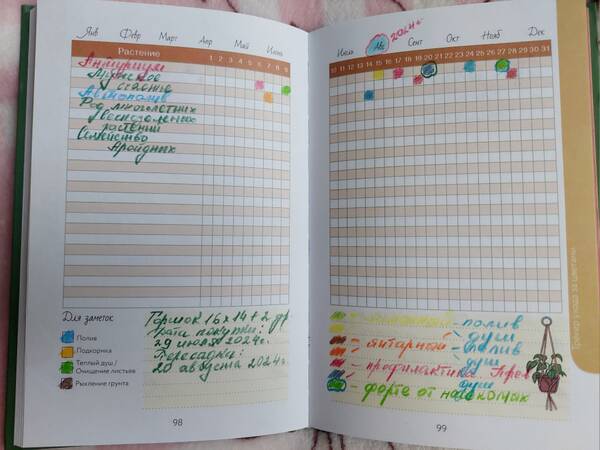 Янв Февр Март Апр Май Июнь
Растение 1 2 3 4 5 6 7 8 9
Антуриум
Мужское
счастье
Автополив
Род многолетних
вечнозеленых
растений
Семейство
Ароидных
Для заметок
Полив
Подкормка
Теплый душ /
Очищение листьев
Рыхление грунта
Горшок 16x14+2 др
Дата покупки:
29 июля 2024г.
Пересадка:
20 августа 2024г.
98
Июль Авг Сент Окт Нояб Дек
2024г.
10 11 12 13 14 15 16 17 18 19 20 21 22 23 24 25 26 27 28 29 30 31
полив
душ
янтарный полив
душ
профилактика
душ
форте от насекомых
99
Трекер ухода за цветами